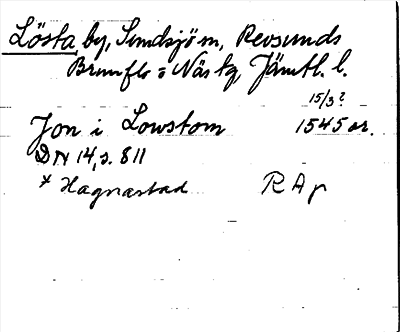 Lösta by, Sundsjö m, Revsunds
Brunflo o Näs tg, Jämtl. l.
15/3?
Jon i Lowstom 1545 or.
DN 14, s. 811
* Hagnastad RAp